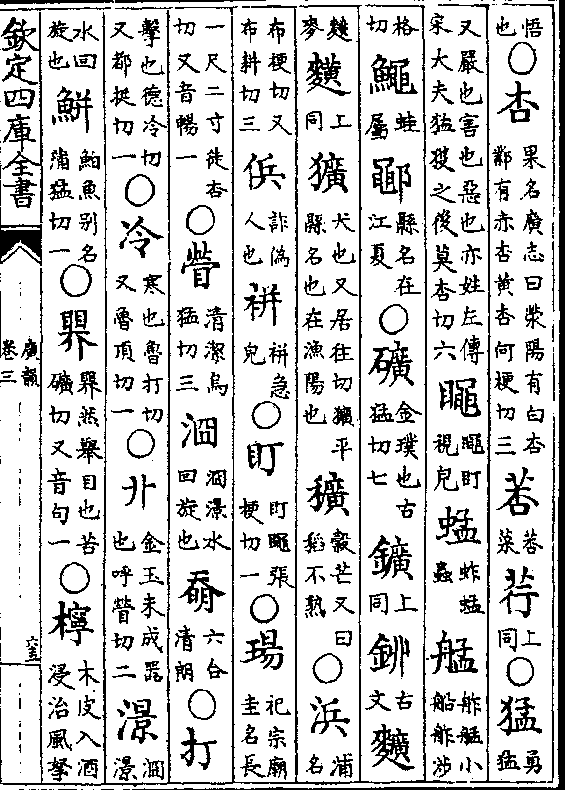 悟也○杏果名廣志曰滎陽有白杏鄴有赤杏黄杏何梗切三莕莕菜荇上同○猛勇猛
又嚴也害也惡也亦姓左傳宋大夫猛獲之後莫杏切六䁅䁅盯視皃蜢蚱蜢蟲艋舴艋小船舴涉
格切鱦蛙屬鄳縣名在江夏○礦金璞也古猛切七鑛上同古文䵃
䵃麥上同獷犬也又居往切獷平縣名也在漁陽也穬穀芒又曰稻不熟○浜浦名
布梗切又布耕切三詐偽人也急皃○盯盯䁅張梗切一○瑒祀宗廟圭名長
一尺二寸徒杏切又音暢一○䁝清潔烏猛切三澋水回旋也奣六合清朗○打
擊也德冷切又都挺切一○冷寒也魯打切又魯頂切一○卝金玉未成器也呼䁝切二澋澋
水回旋也鮩鮊魚別名蒲猛切一○然舉目也苦礦切又音句一○檸木皮入酒浸治風拏
欽定四庫全書
廣韻
卷三
六五